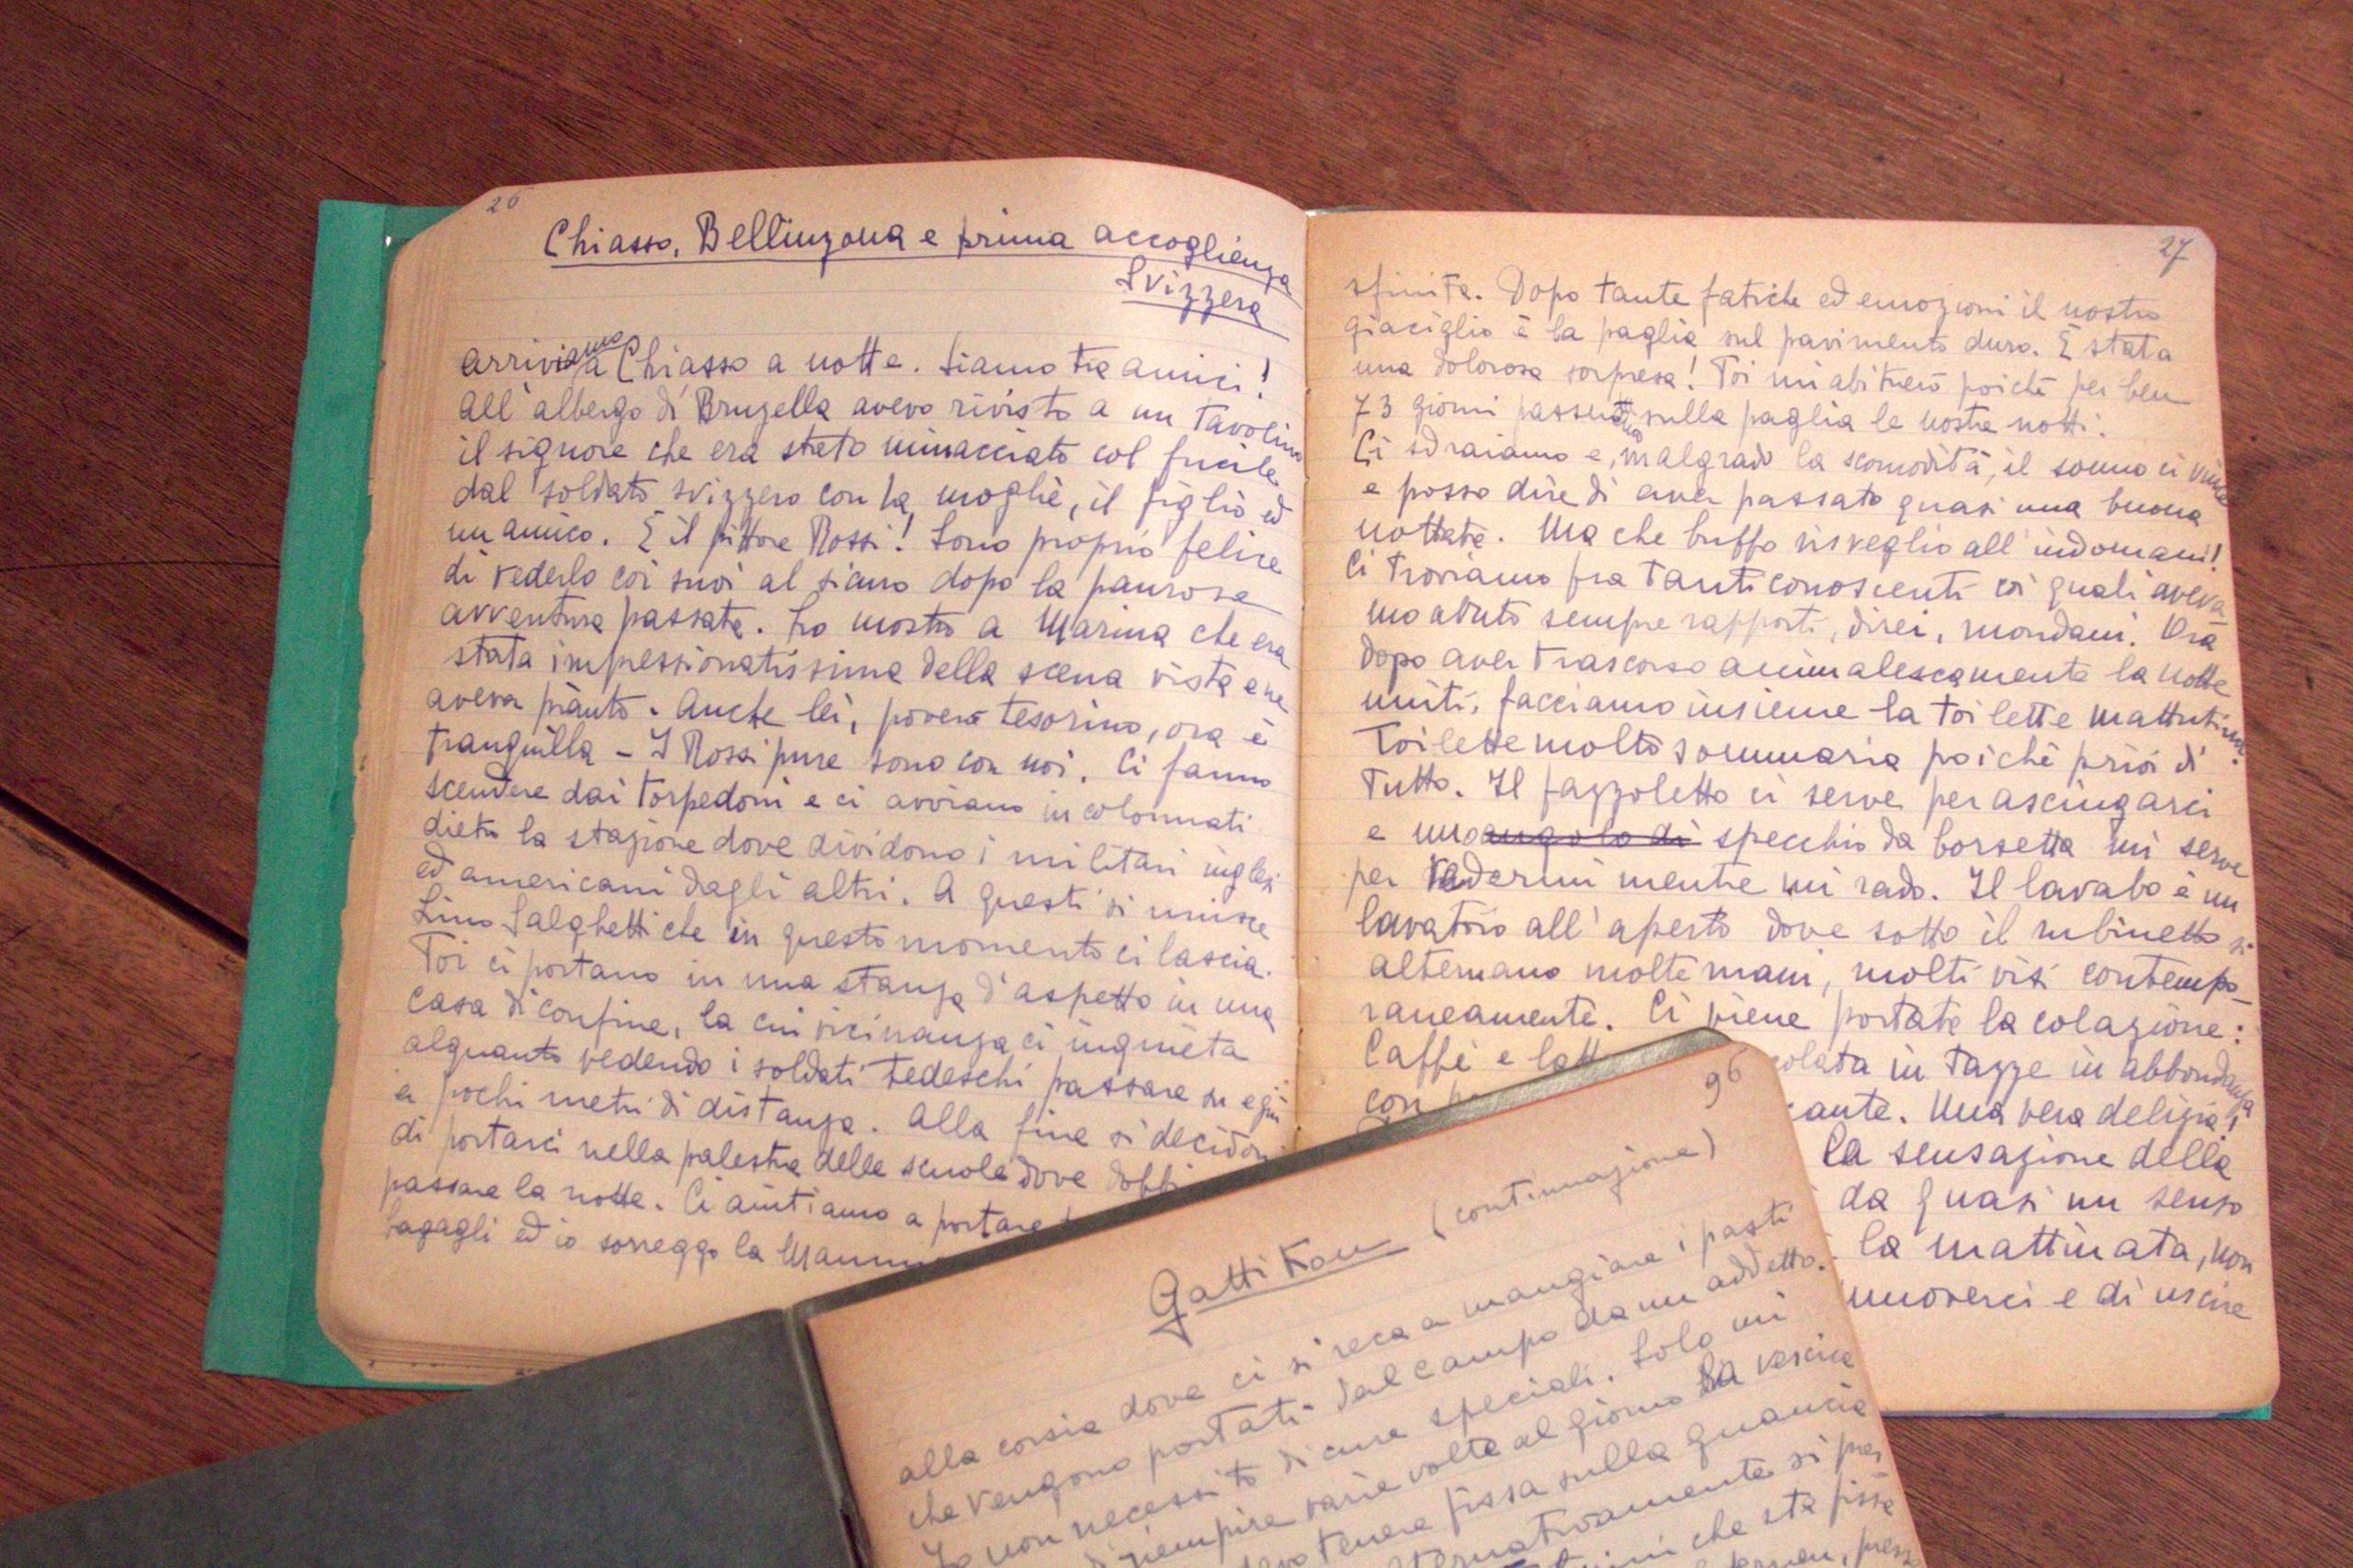 26
Chiasso, Bellinzona e prima accoglienza
Svizzera
arriviamo a Chiasso a notte. Siamo tra amici!
All'albergo di Bruzella avevo rivisto a un tavolino
il signore che era stato minacciato col fucile
dal soldato svizzero con la moglie, il figlio ed
un amico. È il pittore Rossi! Sono proprio felice
di vederlo coi suoi al sicuro dopo la paurosa
avventura passata. Lo mostro a Marina che era
stata impressionatissima della scena vista e ne
aveva pianto. Anche lei, povero tesorino, ora è
tranquilla – I Rossi pure sono con noi. Ci fanno
scendere dai torpedoni e ci avviano incolonnati
dietro la stazione dove dividono i militari inglesi
ed americani dagli altri. A questi si unisce
Lino Salghetti che in questo momento ci lascia.
Poi ci portano in una stanza d'aspetto in una
casa di confine, la cui vicinanza ci inquieta
alquanto vedendo i soldati tedeschi passare su e giù
a pochi metri di distanza. Alla fine si decidono
di portarci nella palestra delle scuole dove
passare la notte. Ci aiutiamo a portare
bagagli ed io sorreggo la
27
sfinita. Dopo tante fatiche ed emozioni il nostro
giaciglio è la paglia sul pavimento duro. È stata
una dolorosa sorpresa! Poi mi abituerò poichè per ben
73 giorni sulla paglia le nostre notti.
Ci sdraiamo e, malgrado la scomodità, il sonno ci vince
e posso dire di aver passato quasi una buona
nottata. Ma che buffo risveglio all'indomani!
Ci troviamo fra tanti conoscenti coi quali aveva
mo avuto sempre rapporti, direi, mondani. Ora
dopo aver trascorso animalescamente la notte
uniti, facciamo insieme la toilette mattutina.
Toilette molto sommaria poichè privi di
tutto. Il fazzoletto ci serve per asciugarci
e uno angolo di specchio da borsetta mi serve
per vedermi mentre mi rado. Il lavabo è un
lavatoio all'aperto dove sotto il rubinetto si
alternano molte mani, molti visi contempo-
raneamente. Ci viene portata la colazione:
Caffè e latte in tazze in abbondanza
con. Una vera delizia!
la sensazione della
da quasi un senso
la mattinata, non
muoverci e di uscire
96
Gattikon (continuazione)
alla corsia dove ci si reca a mangiare i pasti
che vengono portati dal campo da un addetto.
Io non necessito di cure speciali. Solo mi
riempire varie volte al giorno la vescica
tenere fissa sulla guancia
che sta fissa